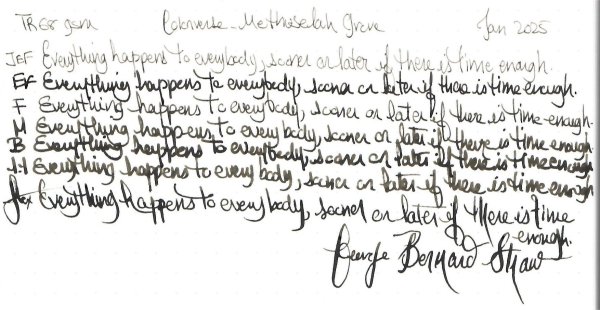 TR 68 gsm Colorverse - Methuselah Grove Jan 2025
JEF Everything happens to everybody, sooner or later if there is time enough.
EF Everything happens to everybody, sooner or later if there is time enough.
F Everything happens to everybody, sooner or later if there is time enough.
M Everything happens to everybody, sooner or later if there is time enough.
B Everything happens to everybody, sooner or later if there is time enough
1.1 Everything happens to every body, sooner or later if there is time enough
flex Everything happens to everybody, sooner or later if there is time
enough.
George Bernard Shaw